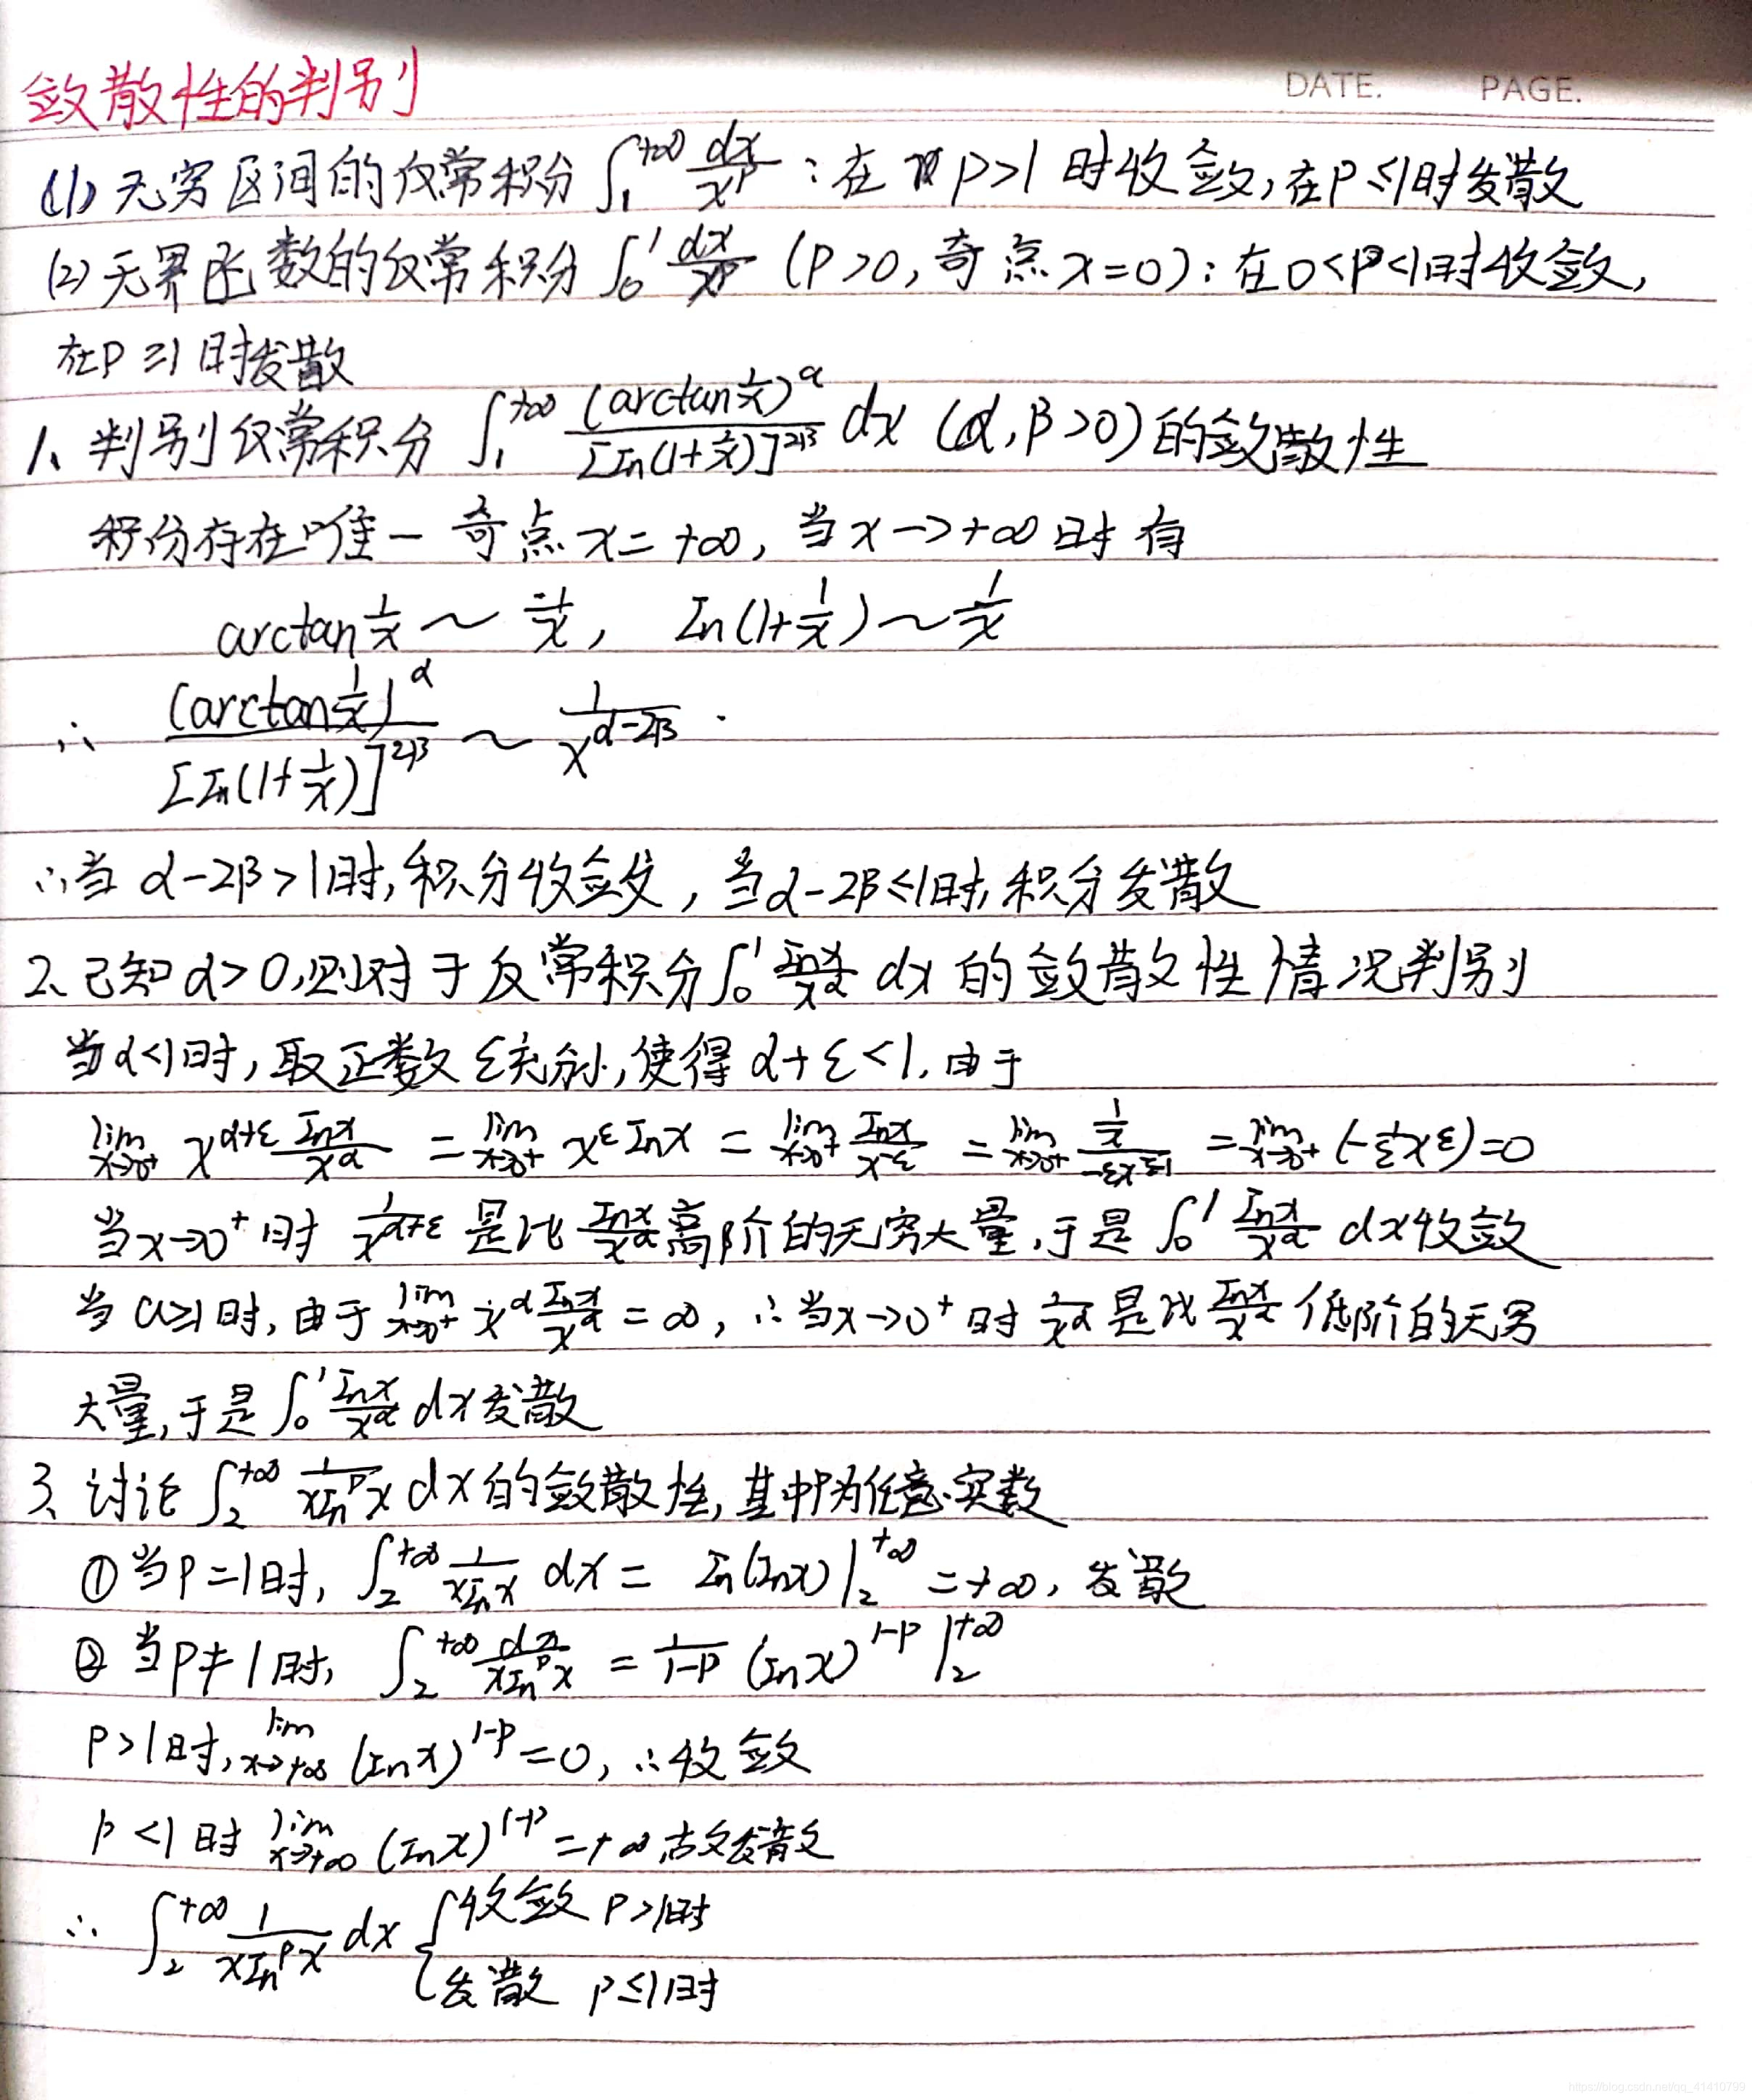 DATE. PAGE.
敛散性的判别
(1) 无穷区间的反常积分 ∫₁^{+∞} dx/x^p : 在 p>1 时收敛,在p≤1时发散
(2) 无界函数的反常积分 ∫₀^1 dx/x^p (P>0, 奇点 x=0): 在0<P<1时收敛,
在P≥1时发散
1、判别反常积分 ∫₁^{+∞} (arctan 1/x)^α / [ln(1+1/x)]^{2β} dx (α,β>0)的敛散性
积分存在唯一奇点 x=+∞, 当x→+∞时有
arctan 1/x ~ 1/x, ln(1+1/x) ~ 1/x
∴ (arctan 1/x)^α / [ln(1+1/x)]^{2β} ~ 1/x^{α-2β}.
∴当 α-2β>1时,积分收敛, 当α-2β≤1时,积分发散
2、已知α>0,则对于反常积分∫₀^1 lnx/x^α dx 的敛散性情况判别
当α<1时,取正数ε充分小,使得 α+ε<1,由于
lim_{x→0+} x^{α+ε} lnx/x^α = lim_{x→0+} x^ε lnx = lim_{x→0+} lnx/x^{-ε} = lim_{x→0+} (1/x)/(-εx^{-ε-1}) = lim_{x→0+} (-1/ε x^ε)=0
当x→0⁺时 1/x^{α+ε} 是比 lnx/x^α 高阶的无穷大量,于是 ∫₀^1 lnx/x^α dx收敛
当α≥1时,由于 lim_{x→0+} x^α lnx/x^α = ∞, ∴当x→0⁺时 1/x^α 是比 lnx/x^α 低阶的无穷
大量,于是∫₀^1 lnx/x^α dx发散
3、讨论 ∫₂^{+∞} 1/(xln^p x) dx的敛散性,其中p为任意实数
①当P=1时, ∫₂^{+∞} 1/(xlnx) dx = ln(lnx)|₂^{+∞} =+∞, 发散
② 当P≠1时, ∫₂^{+∞} dx/(xln^p x) = 1/(1-P) (lnx)^{1-P} |₂^{+∞}
P>1时, lim_{x→+∞} (lnx)^{1-P} =0, ∴收敛
P<1时 lim_{x→+∞} (lnx)^{1-P} =+∞ 故发散
∴ ∫₂^{+∞} 1/(xln^p x) dx { 收敛 P>1时
发散 P≤1时
https://blog.csdn.net/qq_41410799